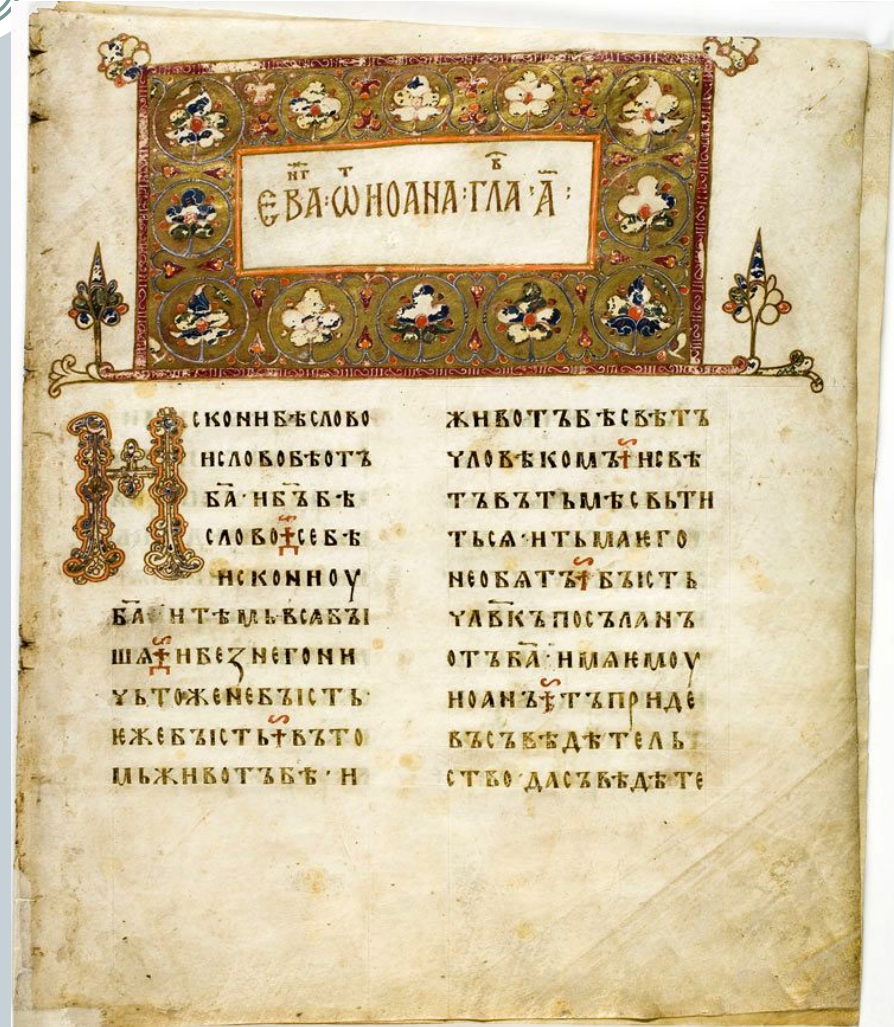 ЄВАⷩ҇ⷢ:ѾИОАНА:ГЛАⷡ҇·А҃:
ИСКОНИБѢСЛОВО
ИСЛОВОБѢОТЪ
БА҃·ИБЪ҃БѢ
СЛОВО+СЕБѢ
ИСКОНИОУ
БА҃·ИТѢМЬВСѦБЪІ
ШѦ+ИБЕЗНЕГОНИ
ЧЬТОЖЕНЕБЪІСТЬ·
ѤЖЕБЪІСТЬ+ВЪТО
МЬЖИВОТЪБѢ·И
ЖИВОТЪБѢСВѢТЪ
ЧЛОВѢКОМЪ+ИСВѢ
ТЪВЪТЬМѢСВЬТИ
ТЬСѦ·ИТЬМАѤГО
НЕОБѦТЪ+БЪІСТЬ
ЧЛВ҃КЪПОСЪЛАНЪ
ОТЪБА҃·ИМѦѤМОУ
ИОАНЪ+ТЪПРИДЕ
ВЪСЪВѢДѢТЕЛЬ
СТВО·ДАСЪВѢДѢТЕ